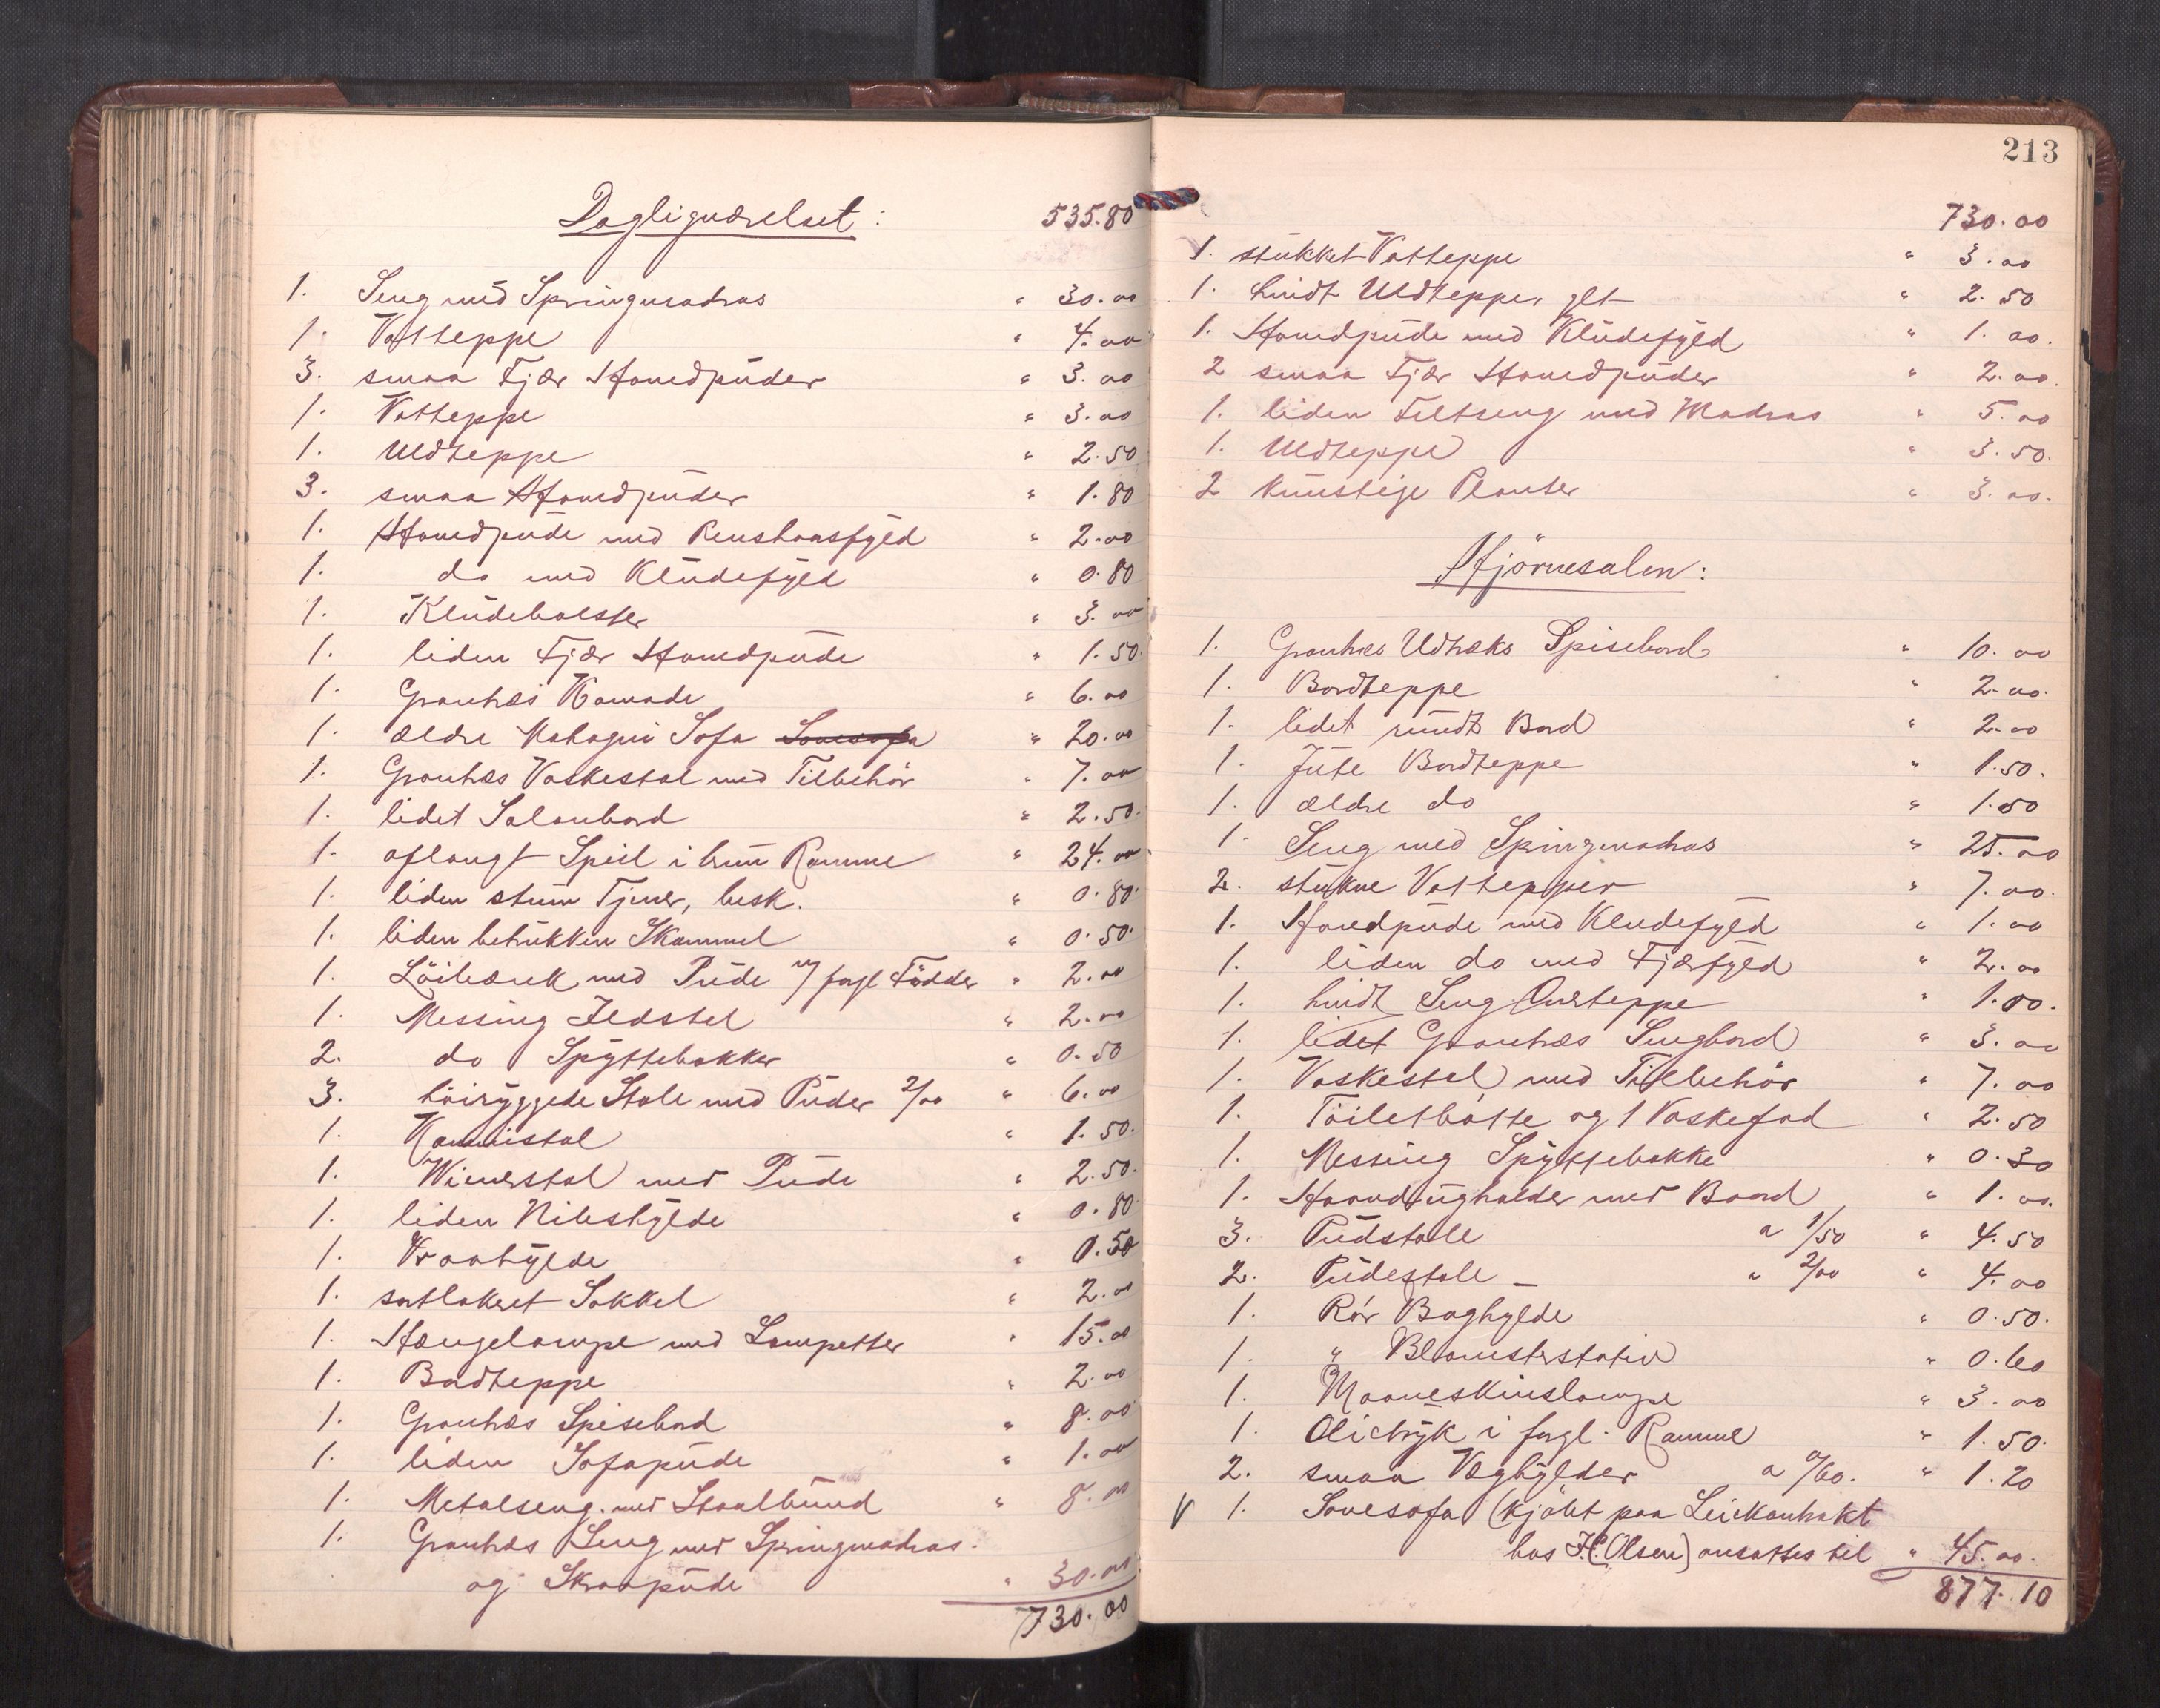 Dagligværelset: 535.80
1. Seng med Springmadras " 30.00
1. Vatteppe " 4.00
3. smaa Fjær Hovedpuder " 3.00
1. Vatteppe " 3.00
1. Uldteppe " 2.50
3. smaa Hovedpuder " 1.80
1. Hovedpude med Renshaarsfyld " 2.00
1. do med Kludefyld " 0.80
1. Kludebolster " 3.00
1. liden Fjær Hovedpude " 1.50
1. Grantræs Komode " 6.00
1. ældre Mahogni Sofa Sovesofa " 20.00
1. Grantræs Vaskestol med Tilbehör " 7.00
1. lidet Salonbord " 2.50
1. aflangt Speil i brun Ramme " 24.00
1. liden stum Tjener, besk. " 0.80
1. liden betrukken Skammel " 0.50
1. Löibænk med Pude m/ forgl Födder " 2.00
1. Messing Ildstel " 2.00
2. do Spyttebakker " 0.50
3. höiryggede Stole med Puder 2/00 " 6.00
1. Kurvistol " 1.50
1. Wienerstol med Pude " 2.50
1. liden Nipshylde " 0.80
1. Vraahylde " 0.50
1. sortlakeret Sokkel " 2.00
1. Hængelampe med Lampetter " 15.00
1. Bordteppe " 2.00
1. Grantræs Spisebord " 8.00
1. liden Sofapude " 1.00
1. Metalseng med Staalbund " 8.00
1. Grantræs Seng med Springmadras.
og Skraapude " 30.00
730.00
213
730.00
1. stukket Vatteppe " 3.00
1. hvidt Uldteppe, glt " 2.50
1. Hovedpude med Kludefyld " 1.00.
2 smaa Fjær Hovedpuder " 2.00.
1. liden Feltseng med Madras " 5.00
1. Uldteppe " 3.50.
2 kunstige Planter " 3.00.
Hjörnesalen:
1. Grantræs Udtræks Spisebord " 10.00
1. Bordteppe " 2.00.
1. lidet rundt Bord " 2.00
1. Jute Bordteppe " 1.50.
1. ældre do " 1.50
1. Seng med Springmadras " 25.00
2. stukne Vattepper " 7.00.
1. Hovedpude med Kludefyld " 1.00
1. liden do med Fjærfyld " 2.00
1. hvidt Seng Overteppe " 1.00.
1. lidet Grantræs Sengbord " 3.00
1. Vaskestel med Tilbehör " 7.00
1. Toiletbötte og 1 Vaskefad " 2.50
1. Messing Spyttebakke " 0.30
1. Haandugholder med Baand " 1.00.
3. Pudstole a 1/50 " 4.50
2. Pudestole " 2/00 " 4.00
1. Rör Boghylde " 0.50.
1. " Blomsterstativ " 0.60
1. Maaneskinslampe " 3.00
1. Olietryk i forgl. Ramme " 1.50.
2. smaa Væghylder a 0/60. " 1.20
V 1. Sovesofa (kjöbt paa Leiekontrakt
hos H. Olsen) ansattes til " 45.00.
877.10